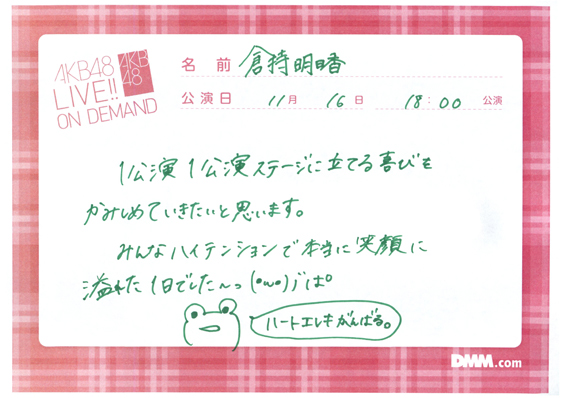 AKB48
LIVE!!
ON DEMAND
AKB
48
名前 倉持明日香
公演日 11月 16日 18:00 公演
1公演1公演ステージに立てる喜びを
かみしめていきたいと思います。
みんなハイテンションで本当に笑顔に
溢れた1日でした〜っ(•ω•)
ハートエレキがんばる。
DMM.com